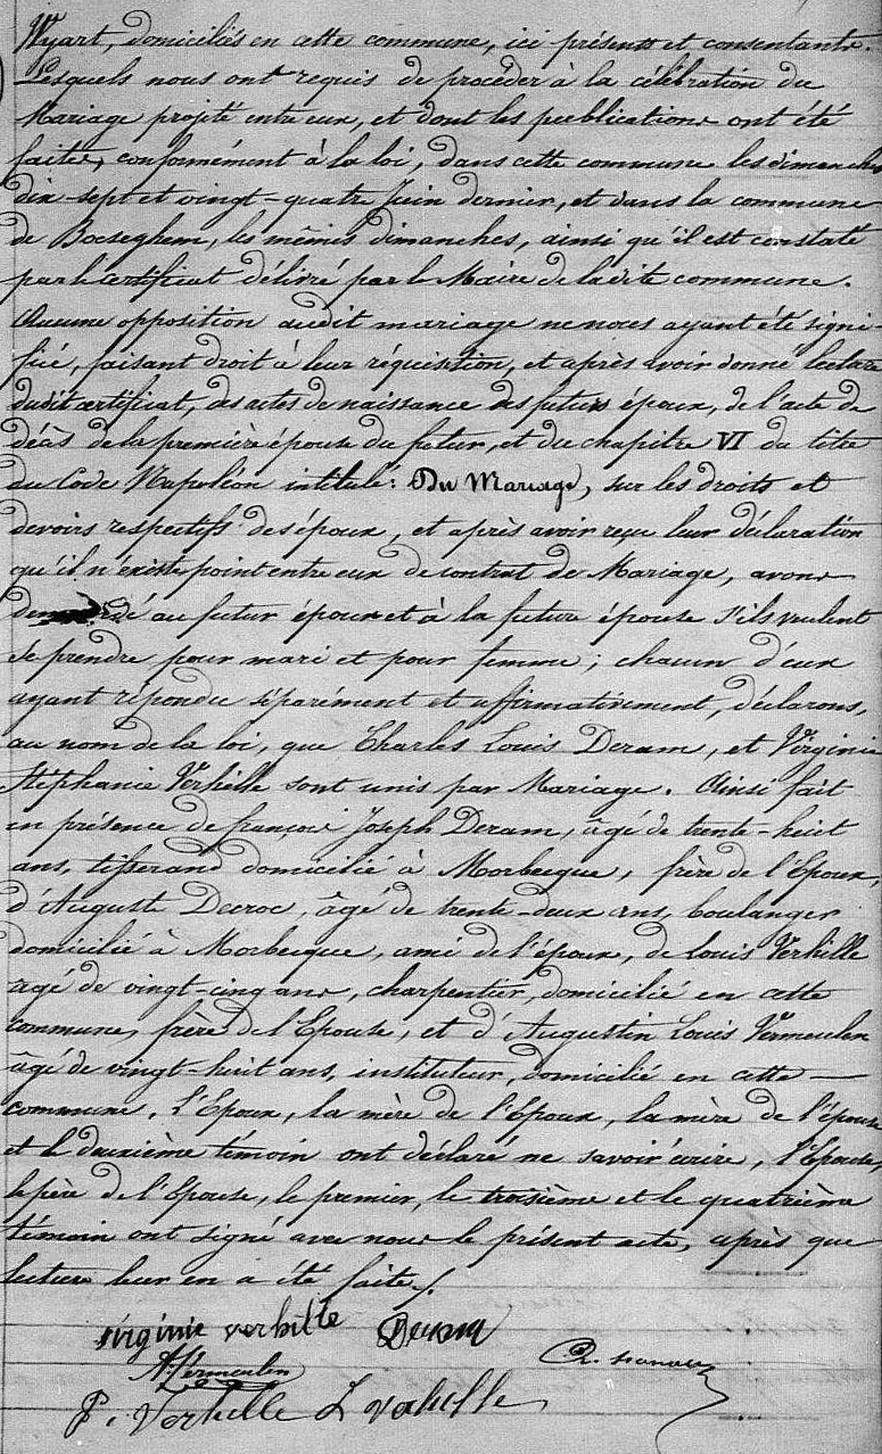 Wyart, domiciliés en cette commune, ici présents et consentants.
Lesquels nous ont requis de procéder à la célébration du
Mariage projeté entre eux, et dont les publications ont été
faites, conformément à la loi, dans cette commune les dimanches
dix-sept et vingt-quatre Juin dernier, et dans la commune
de Boeseghem, les mêmes dimanches, ainsi qu'il est constaté
par le certificat délivré par le Maire de ladite commune.
Aucune opposition audit mariage ne nous ayant été signi-
fiée, faisant droit à leur réquisition, et après avoir donné lecture
dudit certificat, des actes de naissance des futurs époux, de l'acte de
décès de la première épouse du futur, et du chapitre VI du titre
du Code Napoléon intitulé: Du Mariage, sur les droits et
devoirs respectifs des époux, et après avoir reçu leur déclaration
qu'il n'existe point entre eux de contrat de Mariage, avons
demandé au futur époux et à la future épouse s'ils veulent
se prendre pour mari et pour femme; chacun d'eux
ayant répondu séparément et affirmativement, déclarons,
au nom de la loi, que Charles Louis Deram, et Virginie
Stéphanie Verhille sont unis par Mariage. Ainsi fait
en présence de françois Joseph Deram, âgé de trente-huit
ans, tisserand domicilié à Morbecque, frère de l'Epoux,
d'Auguste Decroc, âgé de trente-deux ans, boulanger
domicilié à Morbecque, ami de l'époux, de Louis Verhille
agé de vingt-cinq ans, charpentier, domicilié en cette
commune, frère de l'Epouse, et d'Augustin Louis Vermeulen
âgé de vingt-huit ans, instituteur, domicilié en cette
commune. L'Epoux, la mère de l'Epoux, la mère de l'épouse
et le deuxième témoin ont déclaré ne savoir écrire, l'Epouse,
le père de l'Epouse, le premier, le troisième et le quatrième
témoin ont signé avec nous le présent acte, après que
lecture leur en a été faite./.
virginie verhille Deram
A. Vermeulen
P. Verhille L verhille